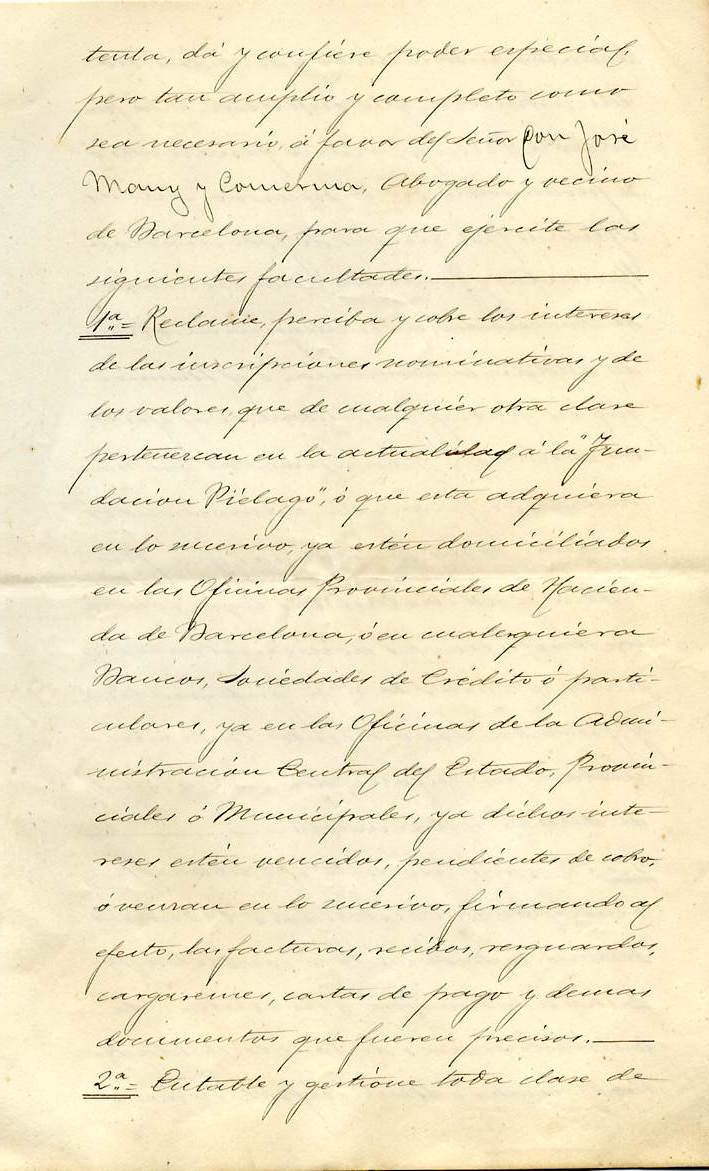 tenta, dá y confiere poder especial,
pero tan amplio y completo como
sea necesario, á favor del Señor Don José
Many y Comerma, Abogado y vecino
de Barcelona, para que ejercite las
siguientes facultades.
1ª= Reclame, perciba y cobre los intereses
de las inscripciones nominativas y de
los valores, que de cualquier otra clase
pertenezcan en la actualidad á la "Fun-
dacion Piélago", ó que esta adquiera
en lo sucesivo, ya estén domiciliados
en las Oficinas Provinciales de Hacien-
da de Barcelona, ó en cualesquiera
Bancos, Sociedades de Crédito ó parti-
culares, ya en las Oficinas de la Admi-
nistración Central del Estado, Provin-
ciales ó Municipales, ya dichos inte-
reses estén vencidos, pendientes de cobro,
ó venzan en lo sucesivo, firmando al
efecto, las facturas, recibos, resguardos,
cargaremes, cartas de pago y demas
documentos que fueren precisos.
2ª= Entable y gestione toda clase de